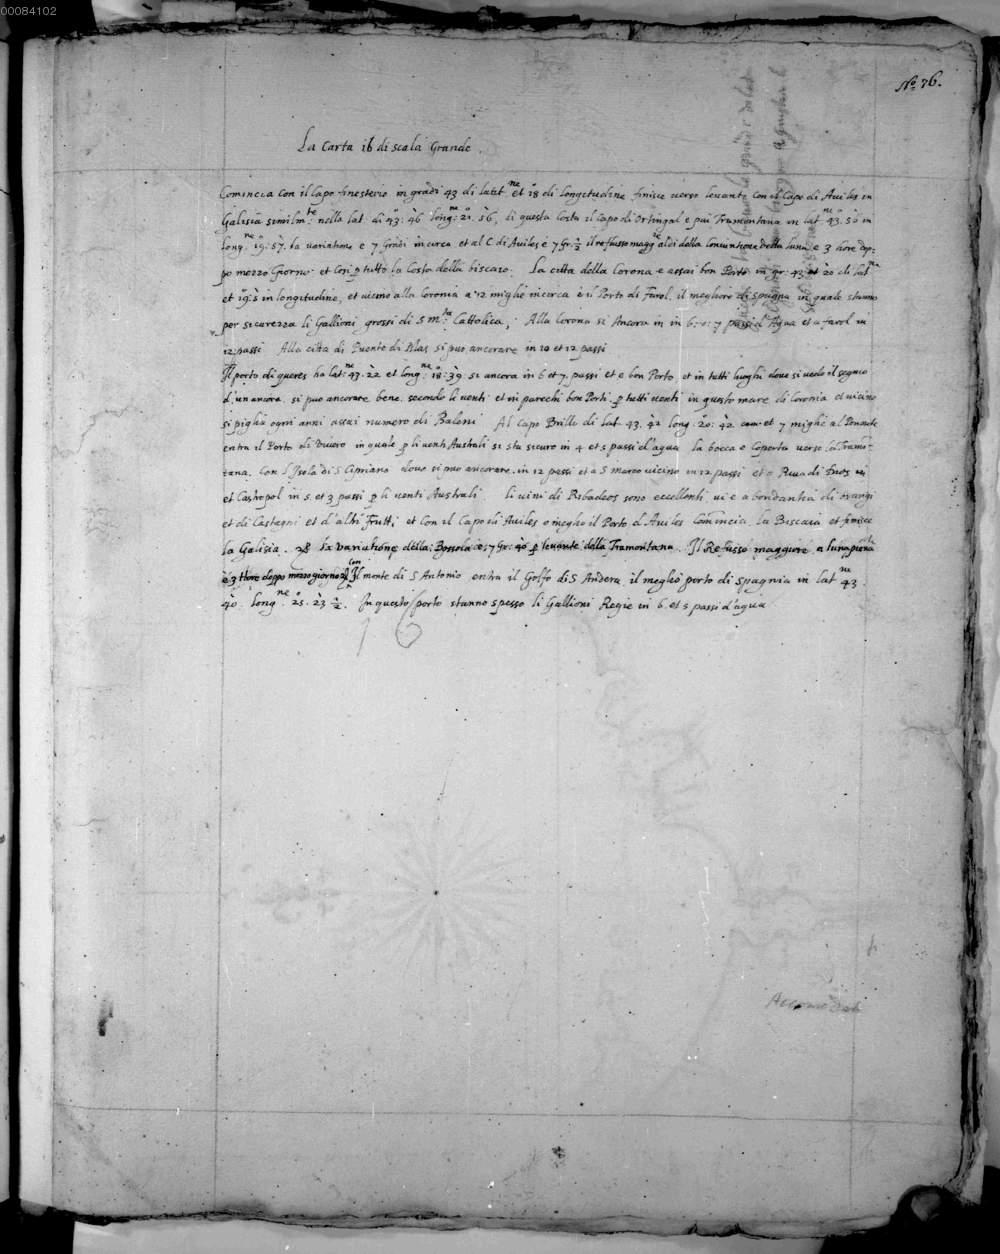 00084102
No. 76.
La Carta 16 di scala Grande.
Comincia con il Capo finesterio in gradi 43 di latit.ne et 18 di longitudine finisce verso levante con il Capo di Aviles in
Galisia similm.te nella lat. di 43: 46 long.ne: 21. 56, di questa Costa il Capo di Ortingal e piu Tramontana in lat.ne 43. 50 in
long.ne 19: 57. la variatione e 7 Gradi incirca et al C. di Aviles è 7 Gr. ½ il reflusso magg.re al di della Coniuntione della luna e 3 hore dop:
po mezzo Giorno et Cosi p tutto la Costa della biscaia. La citta della Corona e assai bon Porto in gr: 43 et 20 di lat.ne
et 19: 5 in longitudine, et vicino alla Coronia a 12 miglie incirca è il Porto di Farol, il megliore di spagna in quale stanno
per sicurezza li Gallioni grossi di S M.ta Cattolica, Alla Corona si Ancora in in 6: o: 7 passi d'Agua et a farol in
12: passi Alla citta di Puente di Mas si puo ancorare in 10 et 12 passi
Il porto di queres ha lat.ne: 43. 22 et long.ne: 18: 39 si ancora in 6 et 7 passi et e bon Porto et in tutti luoghi dove si vede il segnio
d'un ancora, si puo ancorare bene secondo li venti et vi parechi bon Porti p tutti venti in questo mare di Coronia et vicino
si piglia ogni anni assai numero di Baleni Al Capo Brillo di lat. 43. 42 long. 20: 42 et 7 miglie al Ponente
entra il Porto di Vivero in quale p li venti Australi si sta sicuro in 4 et 5 passi d'agua la bocca e Coperta verso la Trami=
tana, Con l'Isola di S Cipriano dove si puo ancorare in 12 passi et a S marco vicino in 12 passi et a Riva di
et Castropol in 5. et 3 passi p li venti Australi li vini di Ribadeos sono eccellenti vi e abondantia di orangi
et di Castagni et d'altri Frutti et Con il Capo di Aviles o meglio il Porto d Aviles Comincia la Biscaia et finisce
la Galisia. La variatione della Bossola è: 7 Gr: 40 p levante della Tramontana. Il Reflusso maggiore a luna piena
è 3 Hore doppo mezzogiorno Con Il monte di S Antonio entra il Golfo di S Andera il meglio porto di spagnia in lat.ne 43.
40. long.ne 25. 23 ½. In questo porto stanno spesso li Gallioni Regie in 6. et 5 passi d'agua